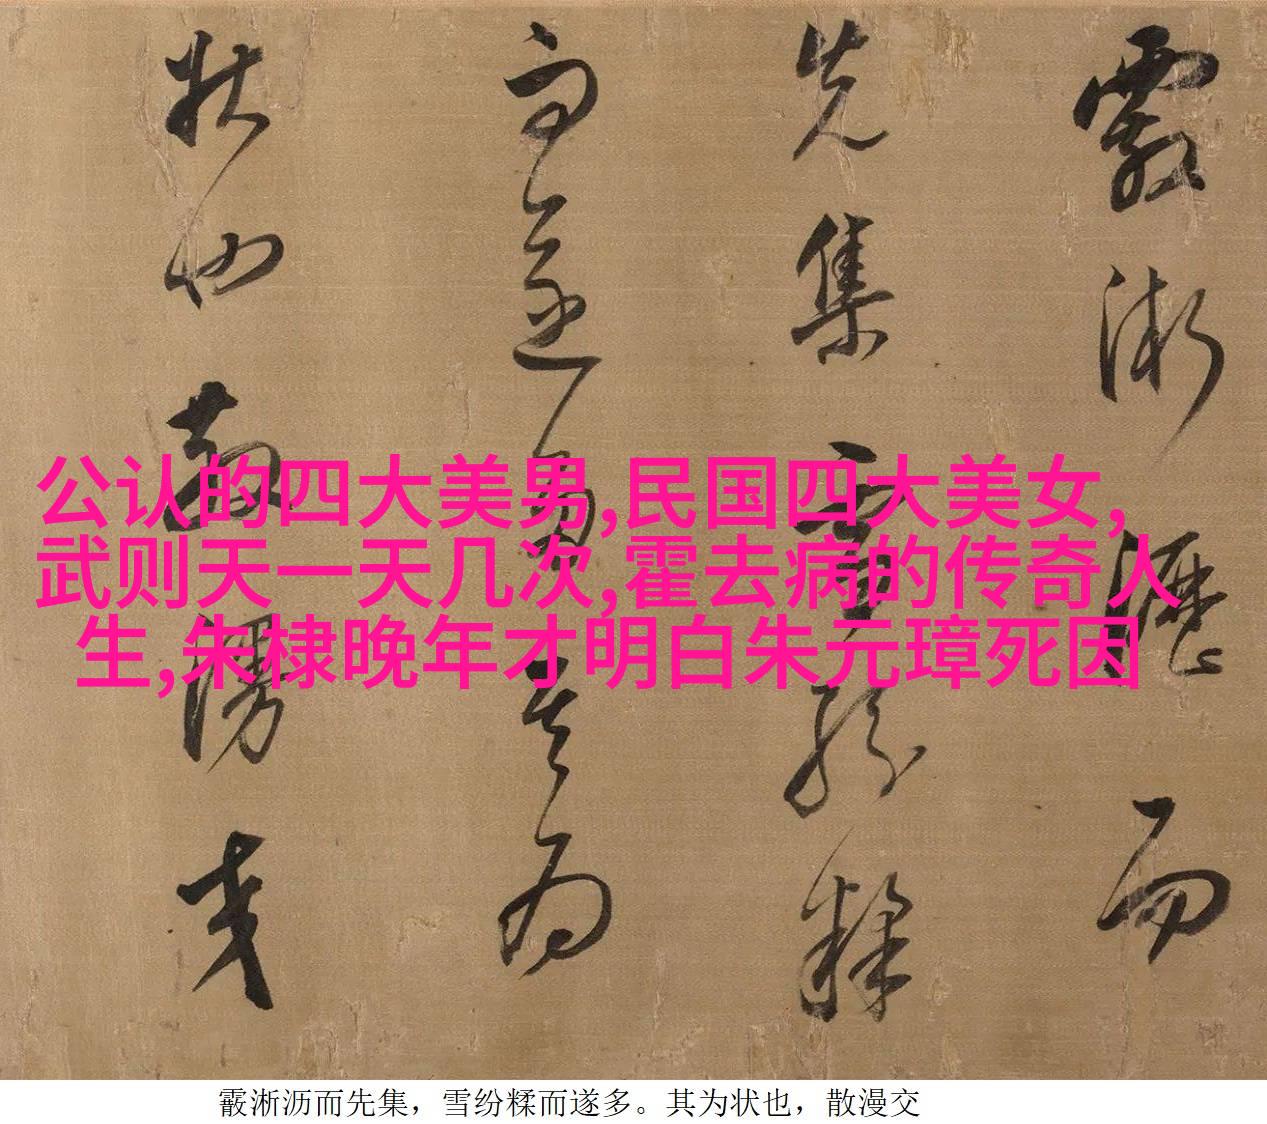 霰淅瀝而
先集雪紛糅
而遂多其為
狀也散漫交
公认的四大美男,民国四大美女,
武则天一天几次,霍去病的传奇人
生,朱棣晚年才明白朱元璋死因
霰淅沥而先集，雪纷糅而遂多。其为状也，散漫交